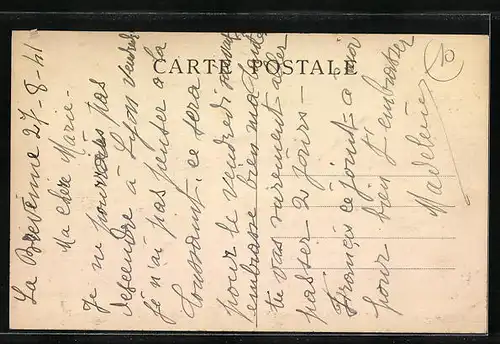 CARTE POSTALE
La Brévenne 27-8-41
Ma chère Marie -
Je ne pourrais pas
descendre à Lyon vendredi
je n'ai pas penser a la
Toussaint. ce sera
pour le vendredi suivant
embrasse bien ma tante
tu vas surement aller
passer 2 jours -
François ce joint a moi
pour bien t'embrasser
Madeleine